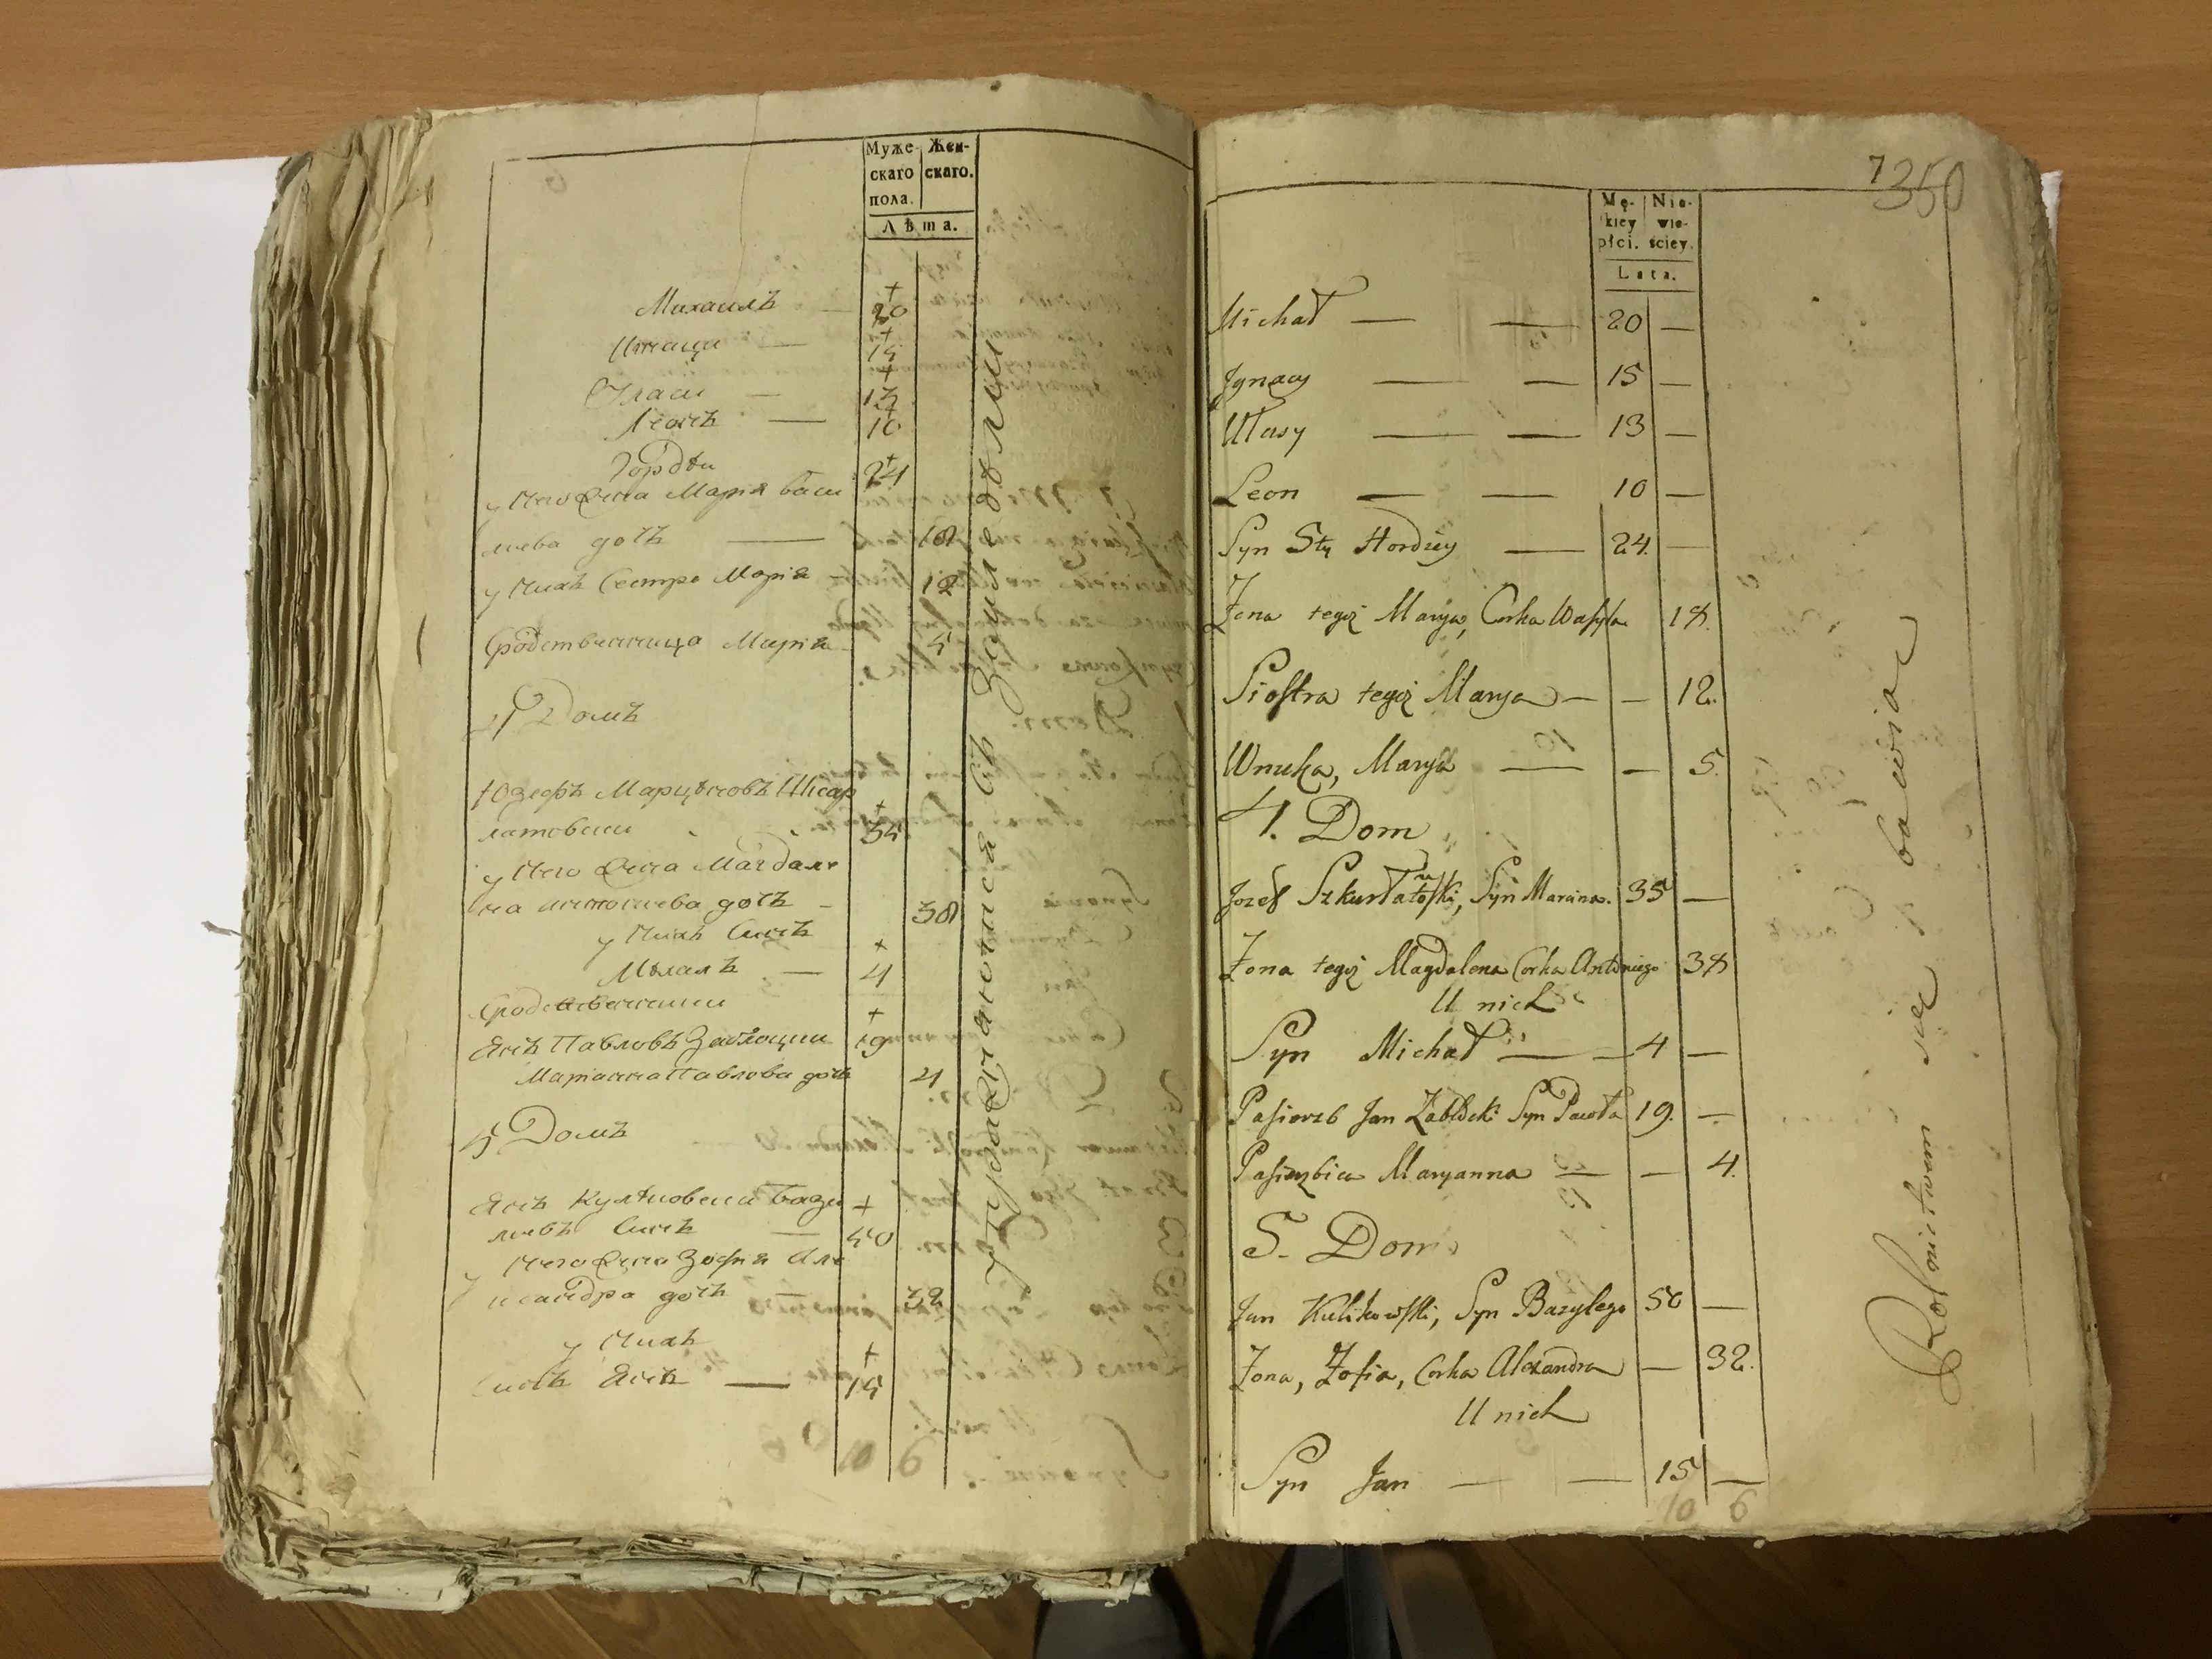 Муже-
скаго
пола.
Жен-
скаго.
Лѣта.
Михаилъ — 20
Игнаци — 15
Власи — 13
Леонъ — 10
Гордѣи 24
у него жена Марія Васи
лиева дочь — 18
у нихъ сестра Марія 12
Сродственница Марія 5
4 Домъ
Юзефъ Марцѣновъ Шкар
латовски 35
у него жена Магдале
на Антониева дочь - 38
у нихъ Синъ
Мѣхалъ — 4
Сродственники
Янъ Павловъ Заблоцки 19
Марianна Павлова дочь 4
5 Домъ
Янъ Кулѣковски Бази
ливъ Синъ — 50
у него жена Зофия Але
ксандра дочь — 32
у нихъ
Синъ Янъ — 15
10 6
упражняются въ Земледѣлии
7
350
Mę-
kiey
płci.
Nie-
wie-
ściey.
Lata.
Michał — — 20 —
Jgnacy — — 15 —
Ułasy — — 13 —
Leon — — 10 —
Syn Stry Hordziey — 24. —
Żona tegoż Marya, Corka Wasyla 18.
Siostra tegoż Marya — — 12.
Wnuka, Marya — — 5.
4. Dom
Jozef Szkurłatowski, Syn Marcina. 35 —
Żona tegoż Magdalena Corka Antoniego 38
U nich
Syn Michał — — 4 —
Pasierzb Jan Zabłocki Syn Pawła 19. —
Pasierzbica Maryanna — — 4.
5. Dom
Jan Kulikowski, Syn Bazylego 50 —
Żona, Zofia, Corka Alexandra — 32.
U nich
Syn Jan — — 15 —
10 6
Rolnictwem się bawią